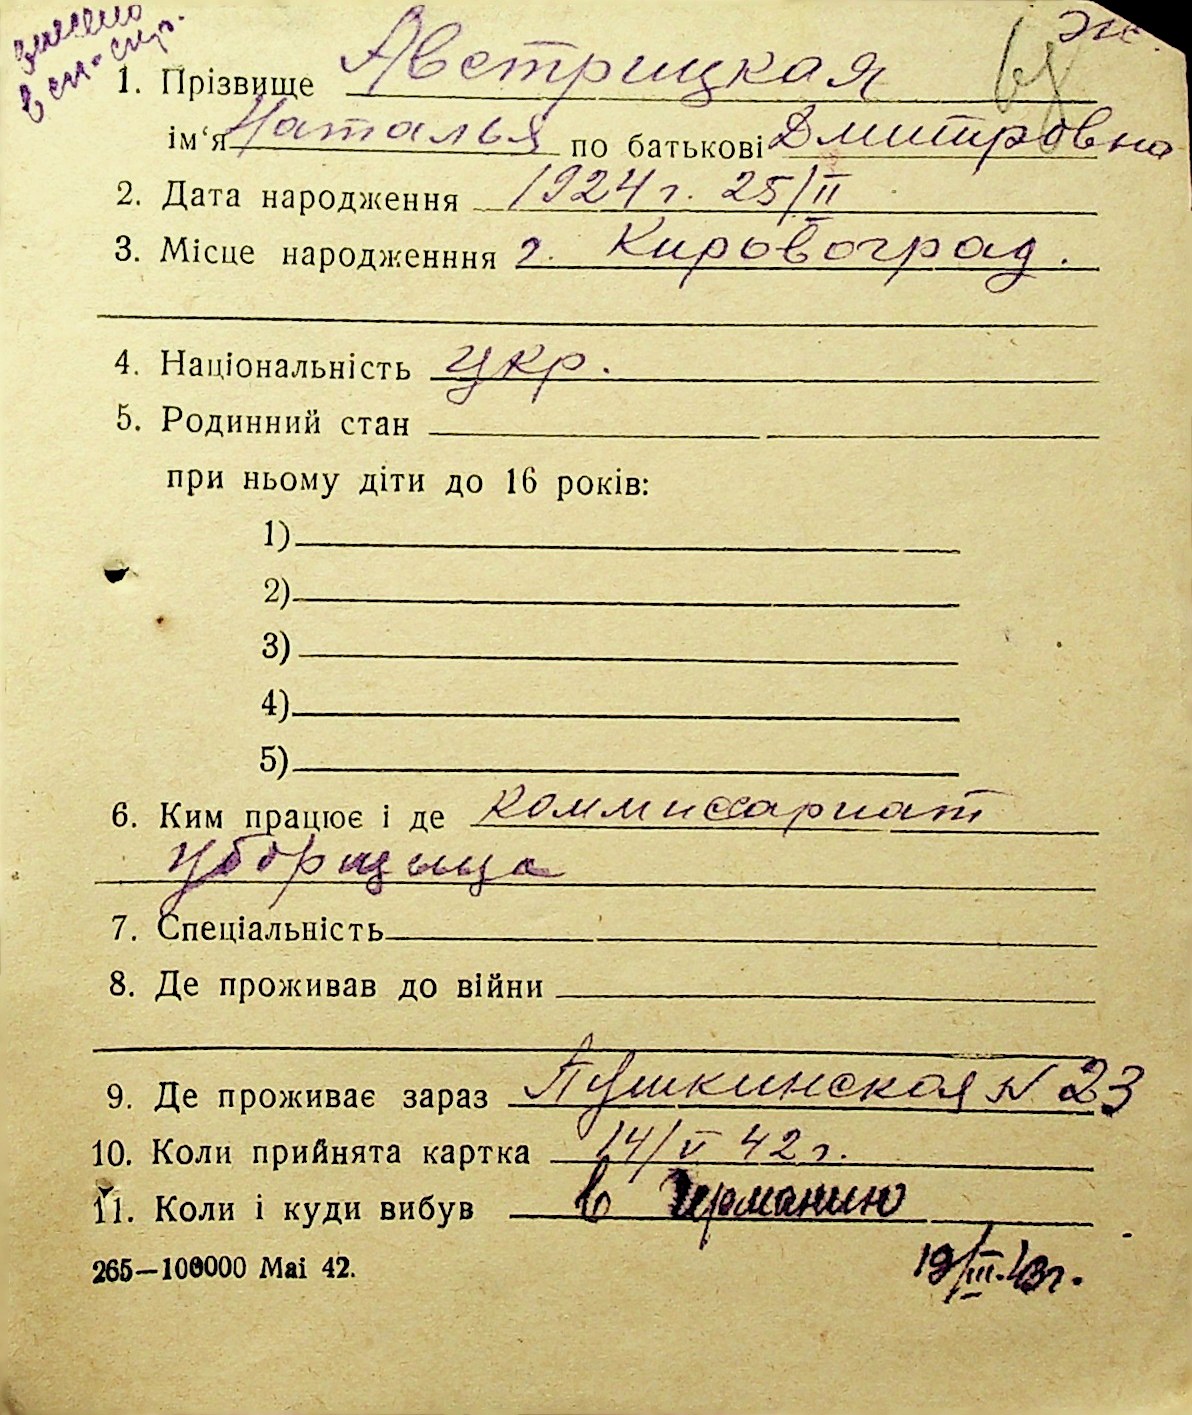 эк.
1. Прізвище Австрицкая
ім‘я Наталья по батькові Дмитровна
2. Дата народження 1924 г. 25/II
3. Місце народженння г. Кировоград.
4. Національність укр.
5. Родинний стан
при ньому діти до 16 років:
1)
2)
3)
4)
5)
6. Ким працює і де коммиссариат
уборщица
7. Спеціальність
8. Де проживав до війни
9. Де проживає зараз Пушкинская N 23
10. Коли прийнята картка 14/V 42 г.
11. Коли і куди вибув в Германию
19/III.43г.
265—100000 Mai 42.